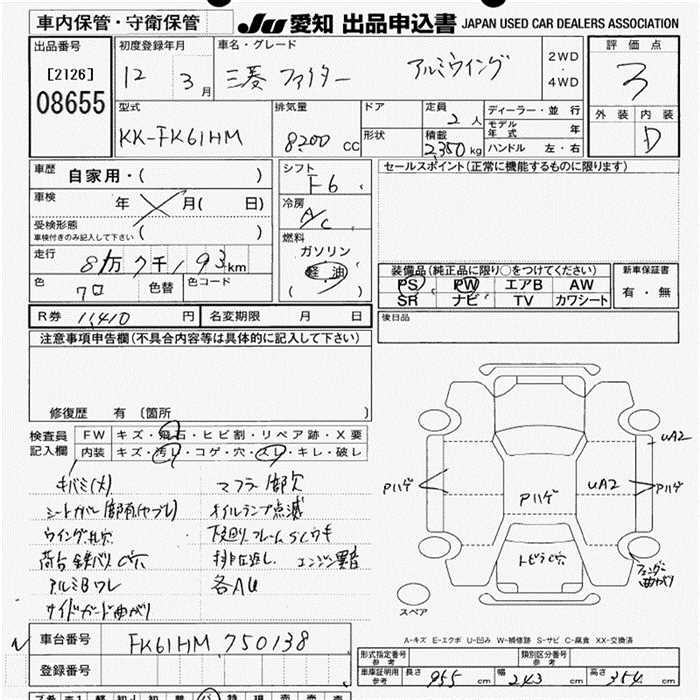 車内保管・守衛保管
JU 愛知 出品申込書 JAPAN USED CAR DEALERS ASSOCIATION
出品番号
[2126]
08655
初度登録年月
12 3月
車名・グレード
三菱 ファイター アルミウイング
2WD
・
4WD
評価点
3
外装 内装
D
型式
KK-FK61HM
排気量
8200 cc
ドア
形状
定員
2人
積載
2,350kg
ディーラー・並行
モデル年式 年
ハンドル 左・右
車歴 自家用・( )
車検 年 月( 日)
受検形態
車検付きのみ記入して下さい ( )
走行 8万7千193km
色 クロ 色替 色コード
シフト
F6
冷房
A/C
燃料
ガソリン
軽油
( )
セールスポイント(正常に機能するものに限ります)
装備品(純正品に限り○をつけてください)
PS PW エアB AW
SR ナビ TV カワシート
新車保証書
有・無
R券 11410 円 名変期限 月 日
後日品
注意事項申告欄(不具合内容等は具体的に記入して下さい)
修復歴 有 〔箇所 〕
検査員記入欄
FW キズ・飛石・ヒビ割・リペア跡・X要
内装 キズ・汚レ・コゲ・穴・スレ・キレ・破レ
キバミ(大) マフラー部欠
シートカバー1部有(ヤブレ) オイルランプ点滅
下廻りフレームSCウキ
荷台 鉄バリC穴 排気返し エンジン異音
アルミBワレ 各AU
サイドガード曲がり
Pハゲ
Pハゲ
UA2
UA2
Pハゲ
トビラC穴
フェンダー曲がり
スペア
A-キズ E-エクボ U-凹み W-補修跡 S-サビ C-腐食 XX-交換済
車台番号 FK61HM 750138
登録番号
形式指定番号 参考
類別区分番号 参考
車庫証明用 参考 長さ 955 cm 幅 243 cm 高さ 354 cm